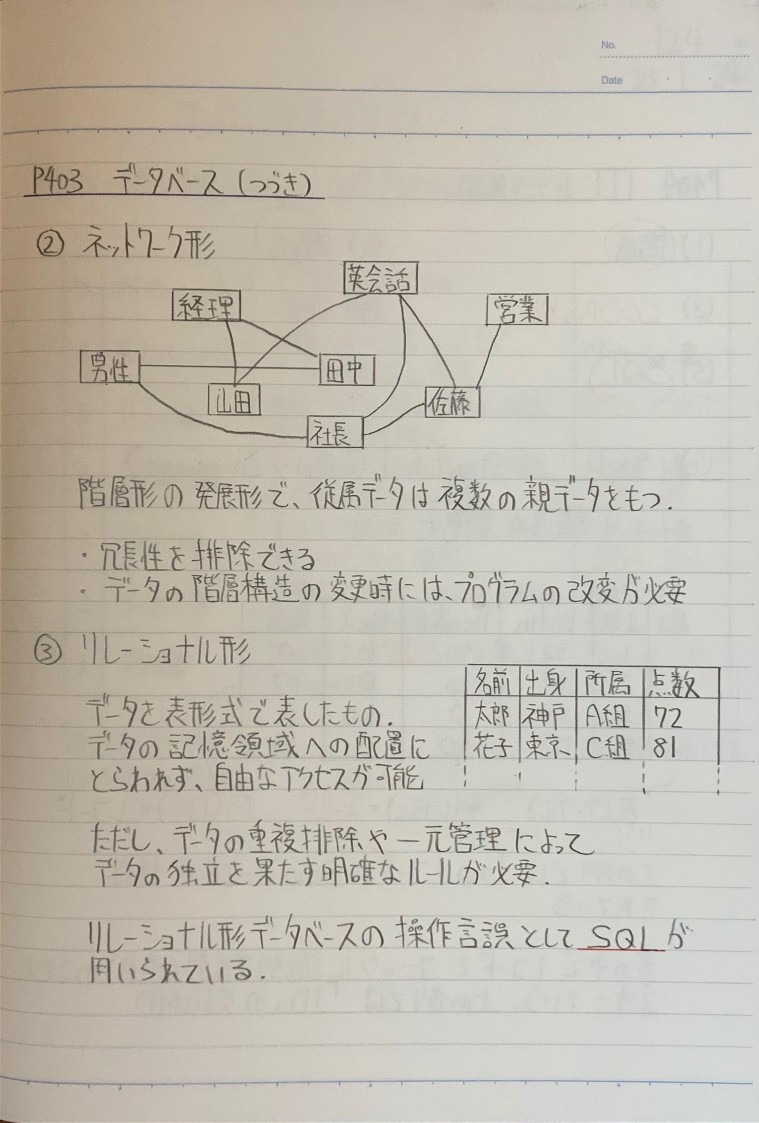 No.
Date
P403 データベース(つづき)
② ネットワーク形
英会話
経理
営業
男性
田中
山田
佐藤
社長
階層形の発展形で、従属データは複数の親データをもつ.
・冗長性を排除できる
・データの階層構造の変更時には、プログラムの改変が必要
③ リレーショナル形
名前 出身 所属 点数
太郎 神戸 A組 72
花子 東京 C組 81
データを表形式で表したもの.
データの記憶領域への配置に
とらわれず、自由なアクセスが可能
ただし、データの重複排除や一元管理によって
データの独立を果たす明確なルールが必要.
リレーショナル形データベースの操作言誤としてSQLが
用いられている.